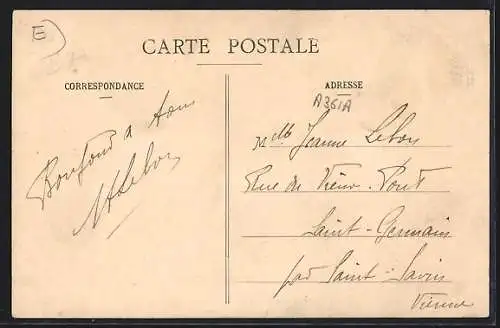 E
CARTE POSTALE
CORRESPONDANCE
Bonjour a tous
ADRESSE
A361A
Mlle Jeanne Lebon
Rue du Vieux-Pont
Saint-Germain
par Saint-Savin
Vienne